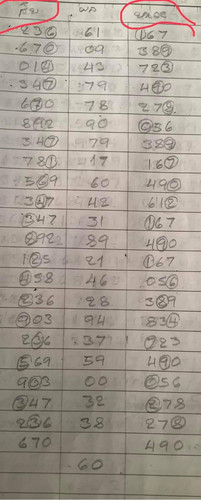 236 61 167
670 09 389
012 43 723
347 79 490
670 78 278
892 90 056
347 79 389
781 17 167
569 60 490
347 42 612
347 31 167
892 89 490
125 21 167
458 46 056
236 28 389
903 94 834
236 37 723
569 59 490
903 00 056
347 32 278
236 38 278
670 490
60